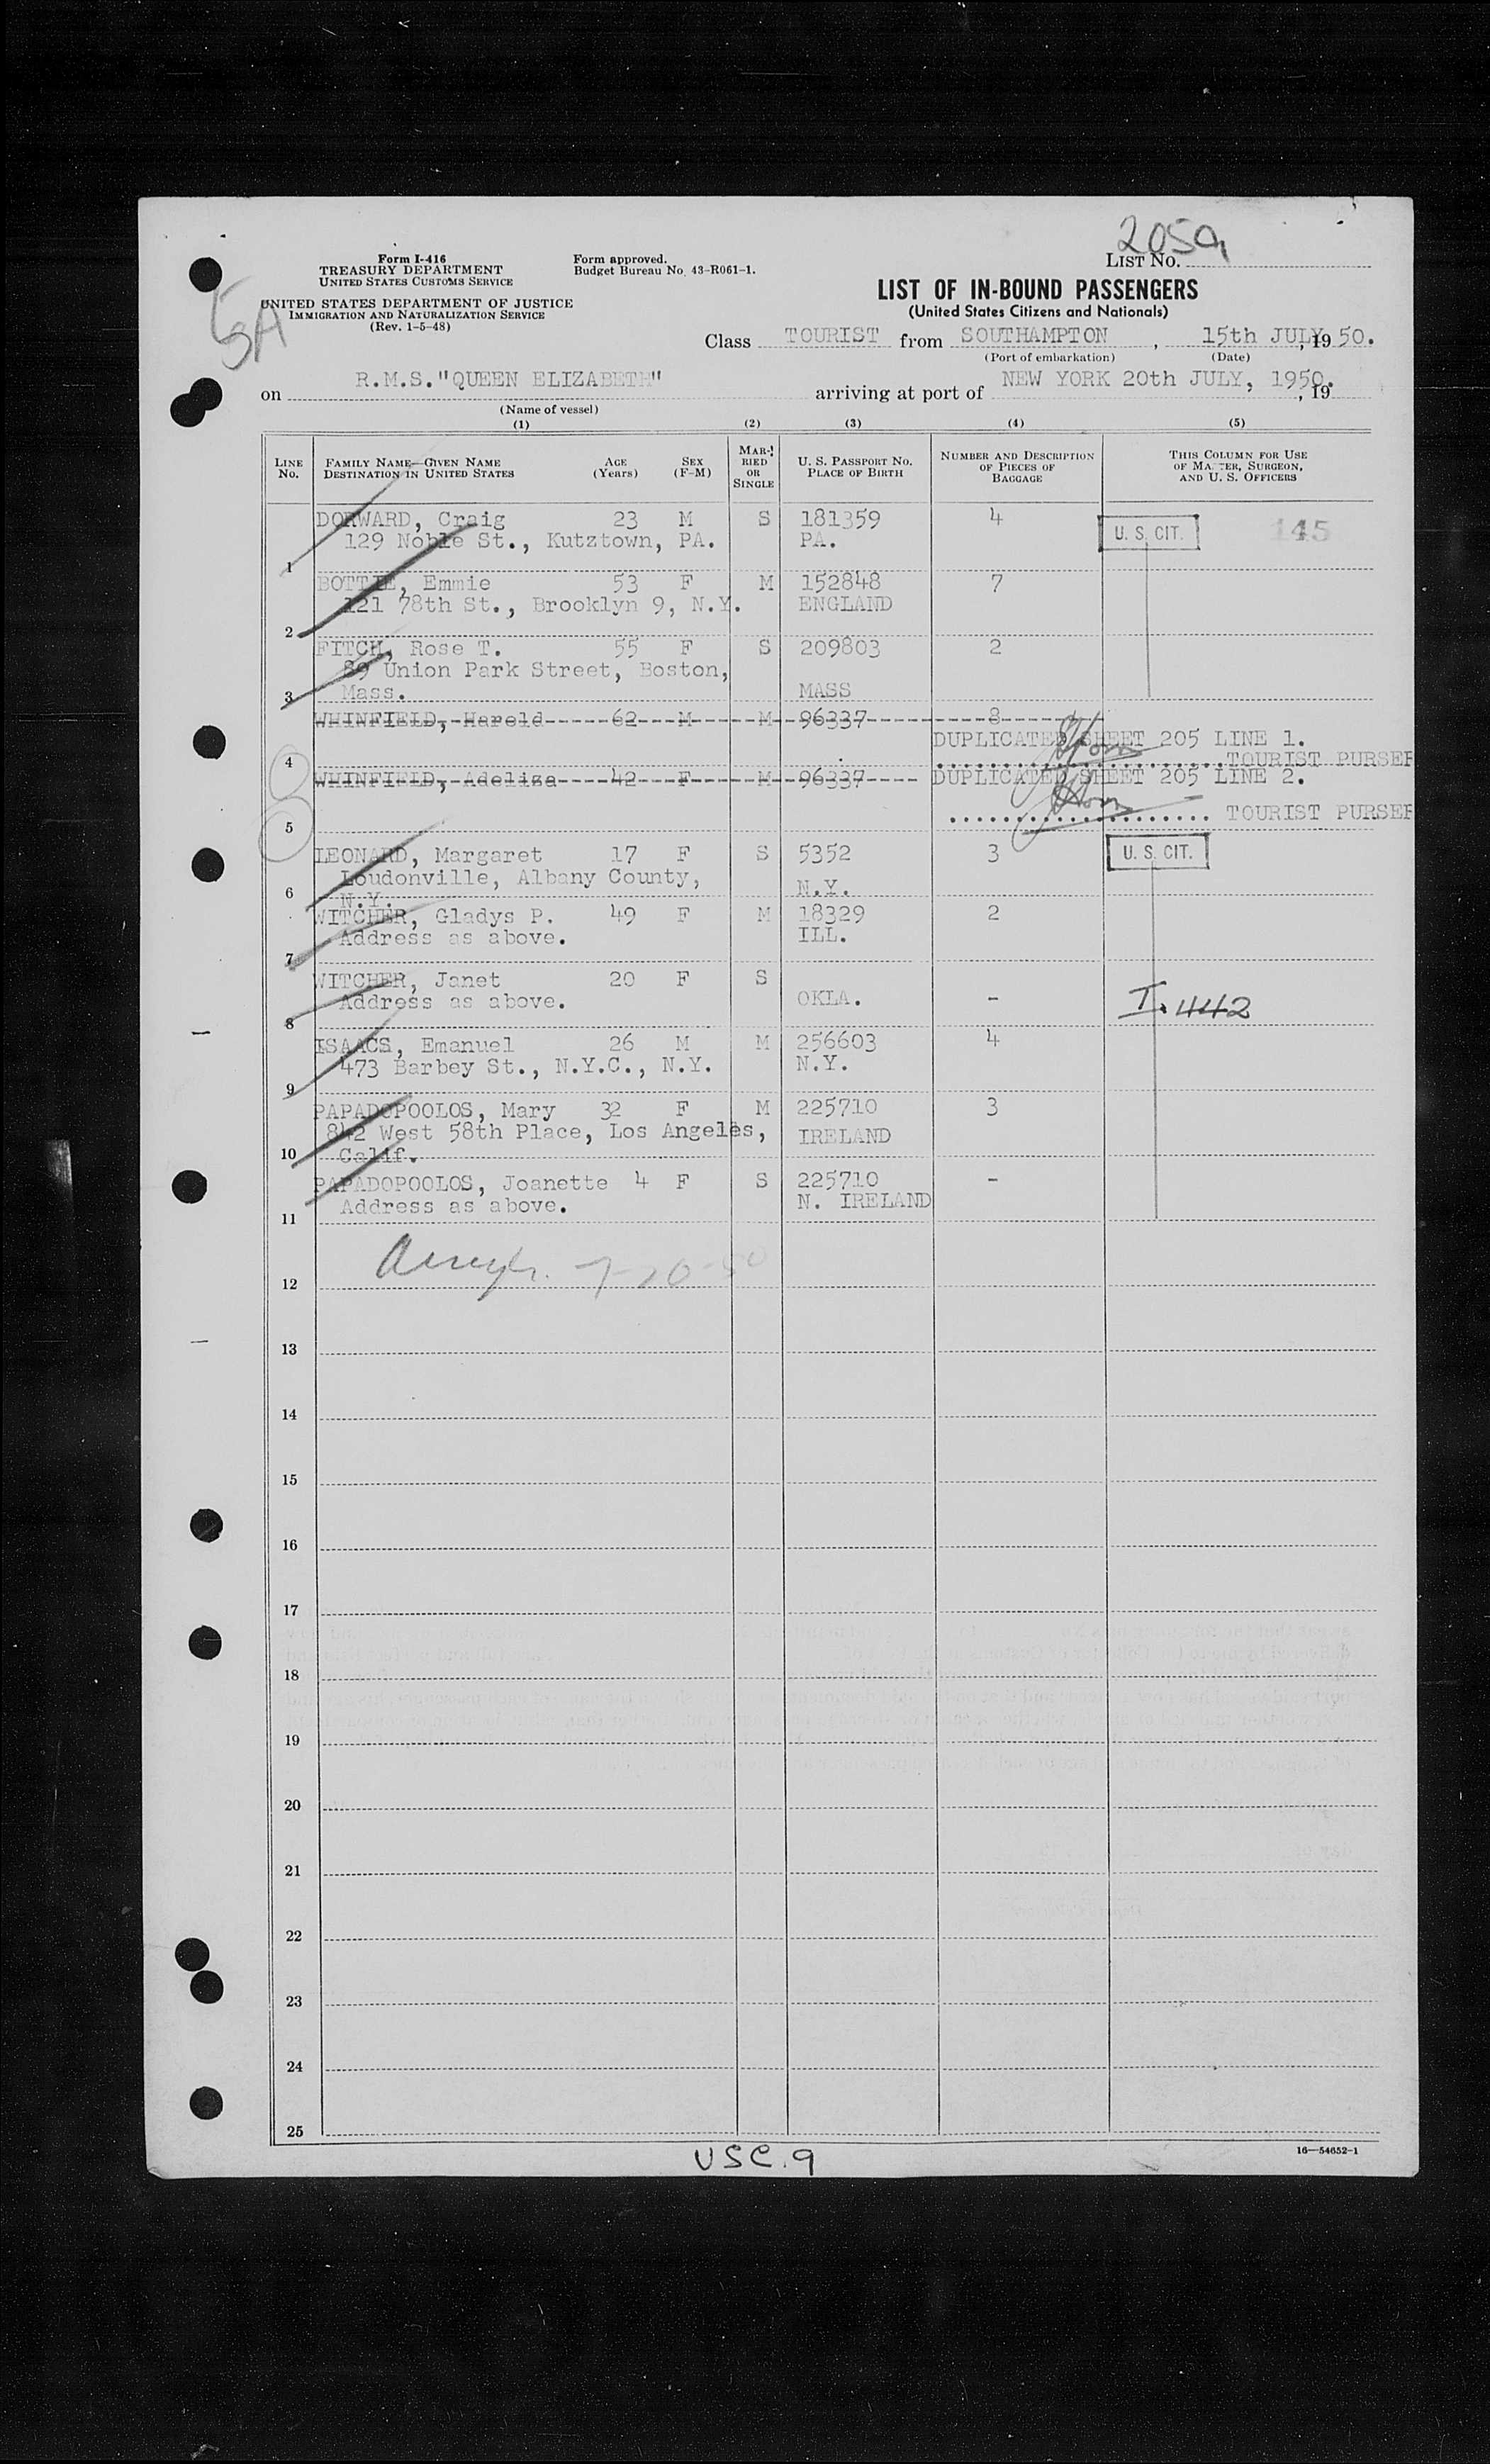 205A
Form I-416
TREASURY DEPARTMENT
UNITED STATES CUSTOMS SERVICE
UNITED STATES DEPARTMENT OF JUSTICE
IMMIGRATION AND NATURALIZATION SERVICE
(Rev. 1-5-48)
5A
Form approved.
Budget Bureau No. 43-R061-1.
LIST NO.
LIST OF IN-BOUND PASSENGERS
(United States Citizens and Nationals)
Class TOURIST from SOUTHAMPTON, 15th JULY, 19 50.
(Port of embarkation) (Date)
on R.M.S."QUEEN ELIZABETH" arriving at port of NEW YORK 20th JULY, 1950. , 19
(Name of vessel)
(1) (2) (3) (4) (5)
LINE NO. FAMILY NAME—GIVEN NAME DESTINATION IN UNITED STATES AGE (Years) SEX (F-M) MARRIED OR SINGLE U. S. PASSPORT NO. PLACE OF BIRTH NUMBER AND DESCRIPTION OF PIECES OF BAGGAGE THIS COLUMN FOR USE OF MASTER, SURGEON, AND U. S. OFFICERS
DORWARD, Craig 23 M S 181359 4 U. S. CIT. 145
129 Noble St., Kutztown, PA. PA.
1
BOTTLE, Emmie 53 F M 152848 7
121 78th St., Brooklyn 9, N.Y. ENGLAND
2
FITCH, Rose T. 55 F S 209803 2
89 Union Park Street, Boston,
3 Mass. MASS
WHINFIELD, Harold 62 M M 96337 8
DUPLICATED SHEET 205 LINE 1.
4 TOURIST PURSER
WHINFIELD, Adeliza 42 F M 96337 DUPLICATED SHEET 205 LINE 2.
TOURIST PURSER
5
LEONARD, Margaret 17 F S 5352 3 U. S. CIT.
Loudonville, Albany County,
6 N.Y. N.Y.
WITCHER, Gladys P. 49 F M 18329 2
Address as above. ILL.
7
WITCHER, Janet 20 F S
Address as above. OKLA. - I. 442
8
ISAACS, Emanuel 26 M M 256603 4
473 Barbey St., N.Y.C., N.Y. N.Y.
9
PAPADOPOOLOS, Mary 32 F M 225710 3
842 West 58th Place, Los Angeles, IRELAND
10 Calif.
PAPADOPOOLOS, Joanette 4 F S 225710 -
Address as above. N. IRELAND
11
7-20-50
12
13
14
15
16
17
18
19
20
21
22
23
24
25
USC. 9
16—54652-1